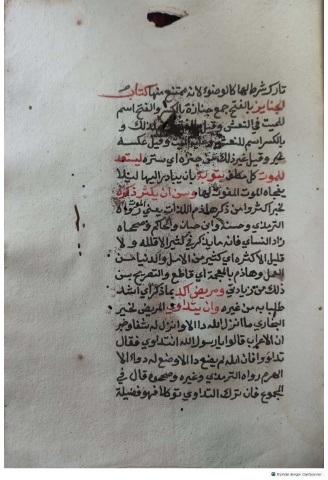 تارك شرطا لها كالوضوء لانه يمتنع منها كتاب
الجنايز بالفتح جمع جنازة بالكسر والفتح اسم
للميت في النعش وقيل بالفتح لذلك و
بالكسر اسم للنعش وعليه الميت وقيل عكسه
وقيل غير ذلك من جنزه اي ستره ليستعد
للموت كل مكلف بتوبة بان يبادر اليها ليلا
يفجاه الموت المفوت لها وسن ان يكثر ذكره
لخبر اكثروا من ذكر هاذم اللذات يعني الموت رواه
الترمذي وحسنه وابن حبان والحاكم وصححاه
زاد النساي فانه ما يذكر في كثير الا قلله ولا
قليل الا كثره اي كثير من الامل والدنيا من
العمل وهاذم بالمعجمة اي قاطع والتصريح بسن
ذلك من زيادتي ومريض اكد بما ذكر اي اشد
طلبا به من غيره وان يتداوى المريض لخبر
البخاري ما انزل الله دا الا وانزل له شفا وخبر
ان الاعراب قالوا يا رسول الله انتداوي فقال
تداووا فان الله لم يضع دا الا وضع له دوا الا
الهرم رواه الترمذي وغيره وصححوه قال في
المجموع فان ترك التداوي توكلا فهو فضيلة